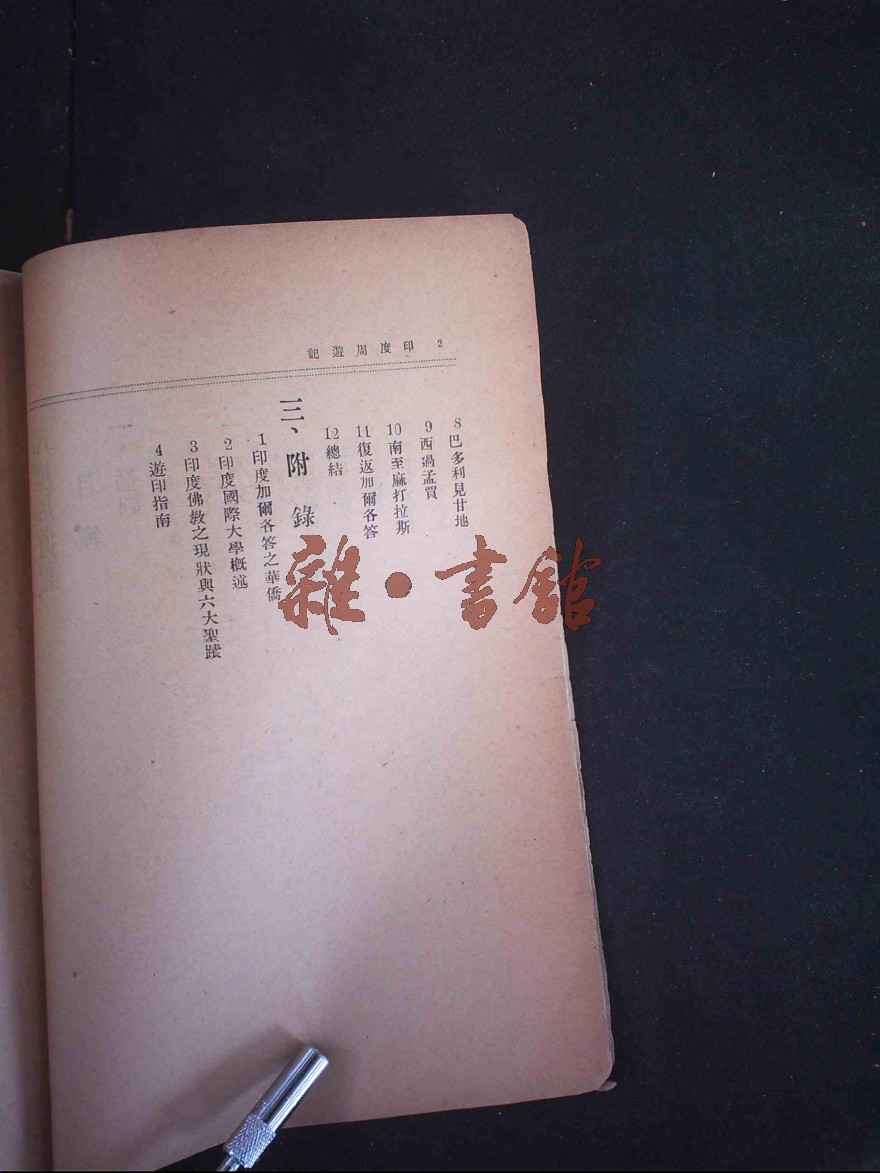 2 印度周遊記
8 巴多利見甘地
9 西過孟買
10 南至麻打拉斯
11 復返加爾各答
12 總結
三、附錄
1 印度加爾各答之華僑
2 印度國際大學概述
3 印度佛教之現狀與六大聖蹟
4 遊印指南
雜·書館